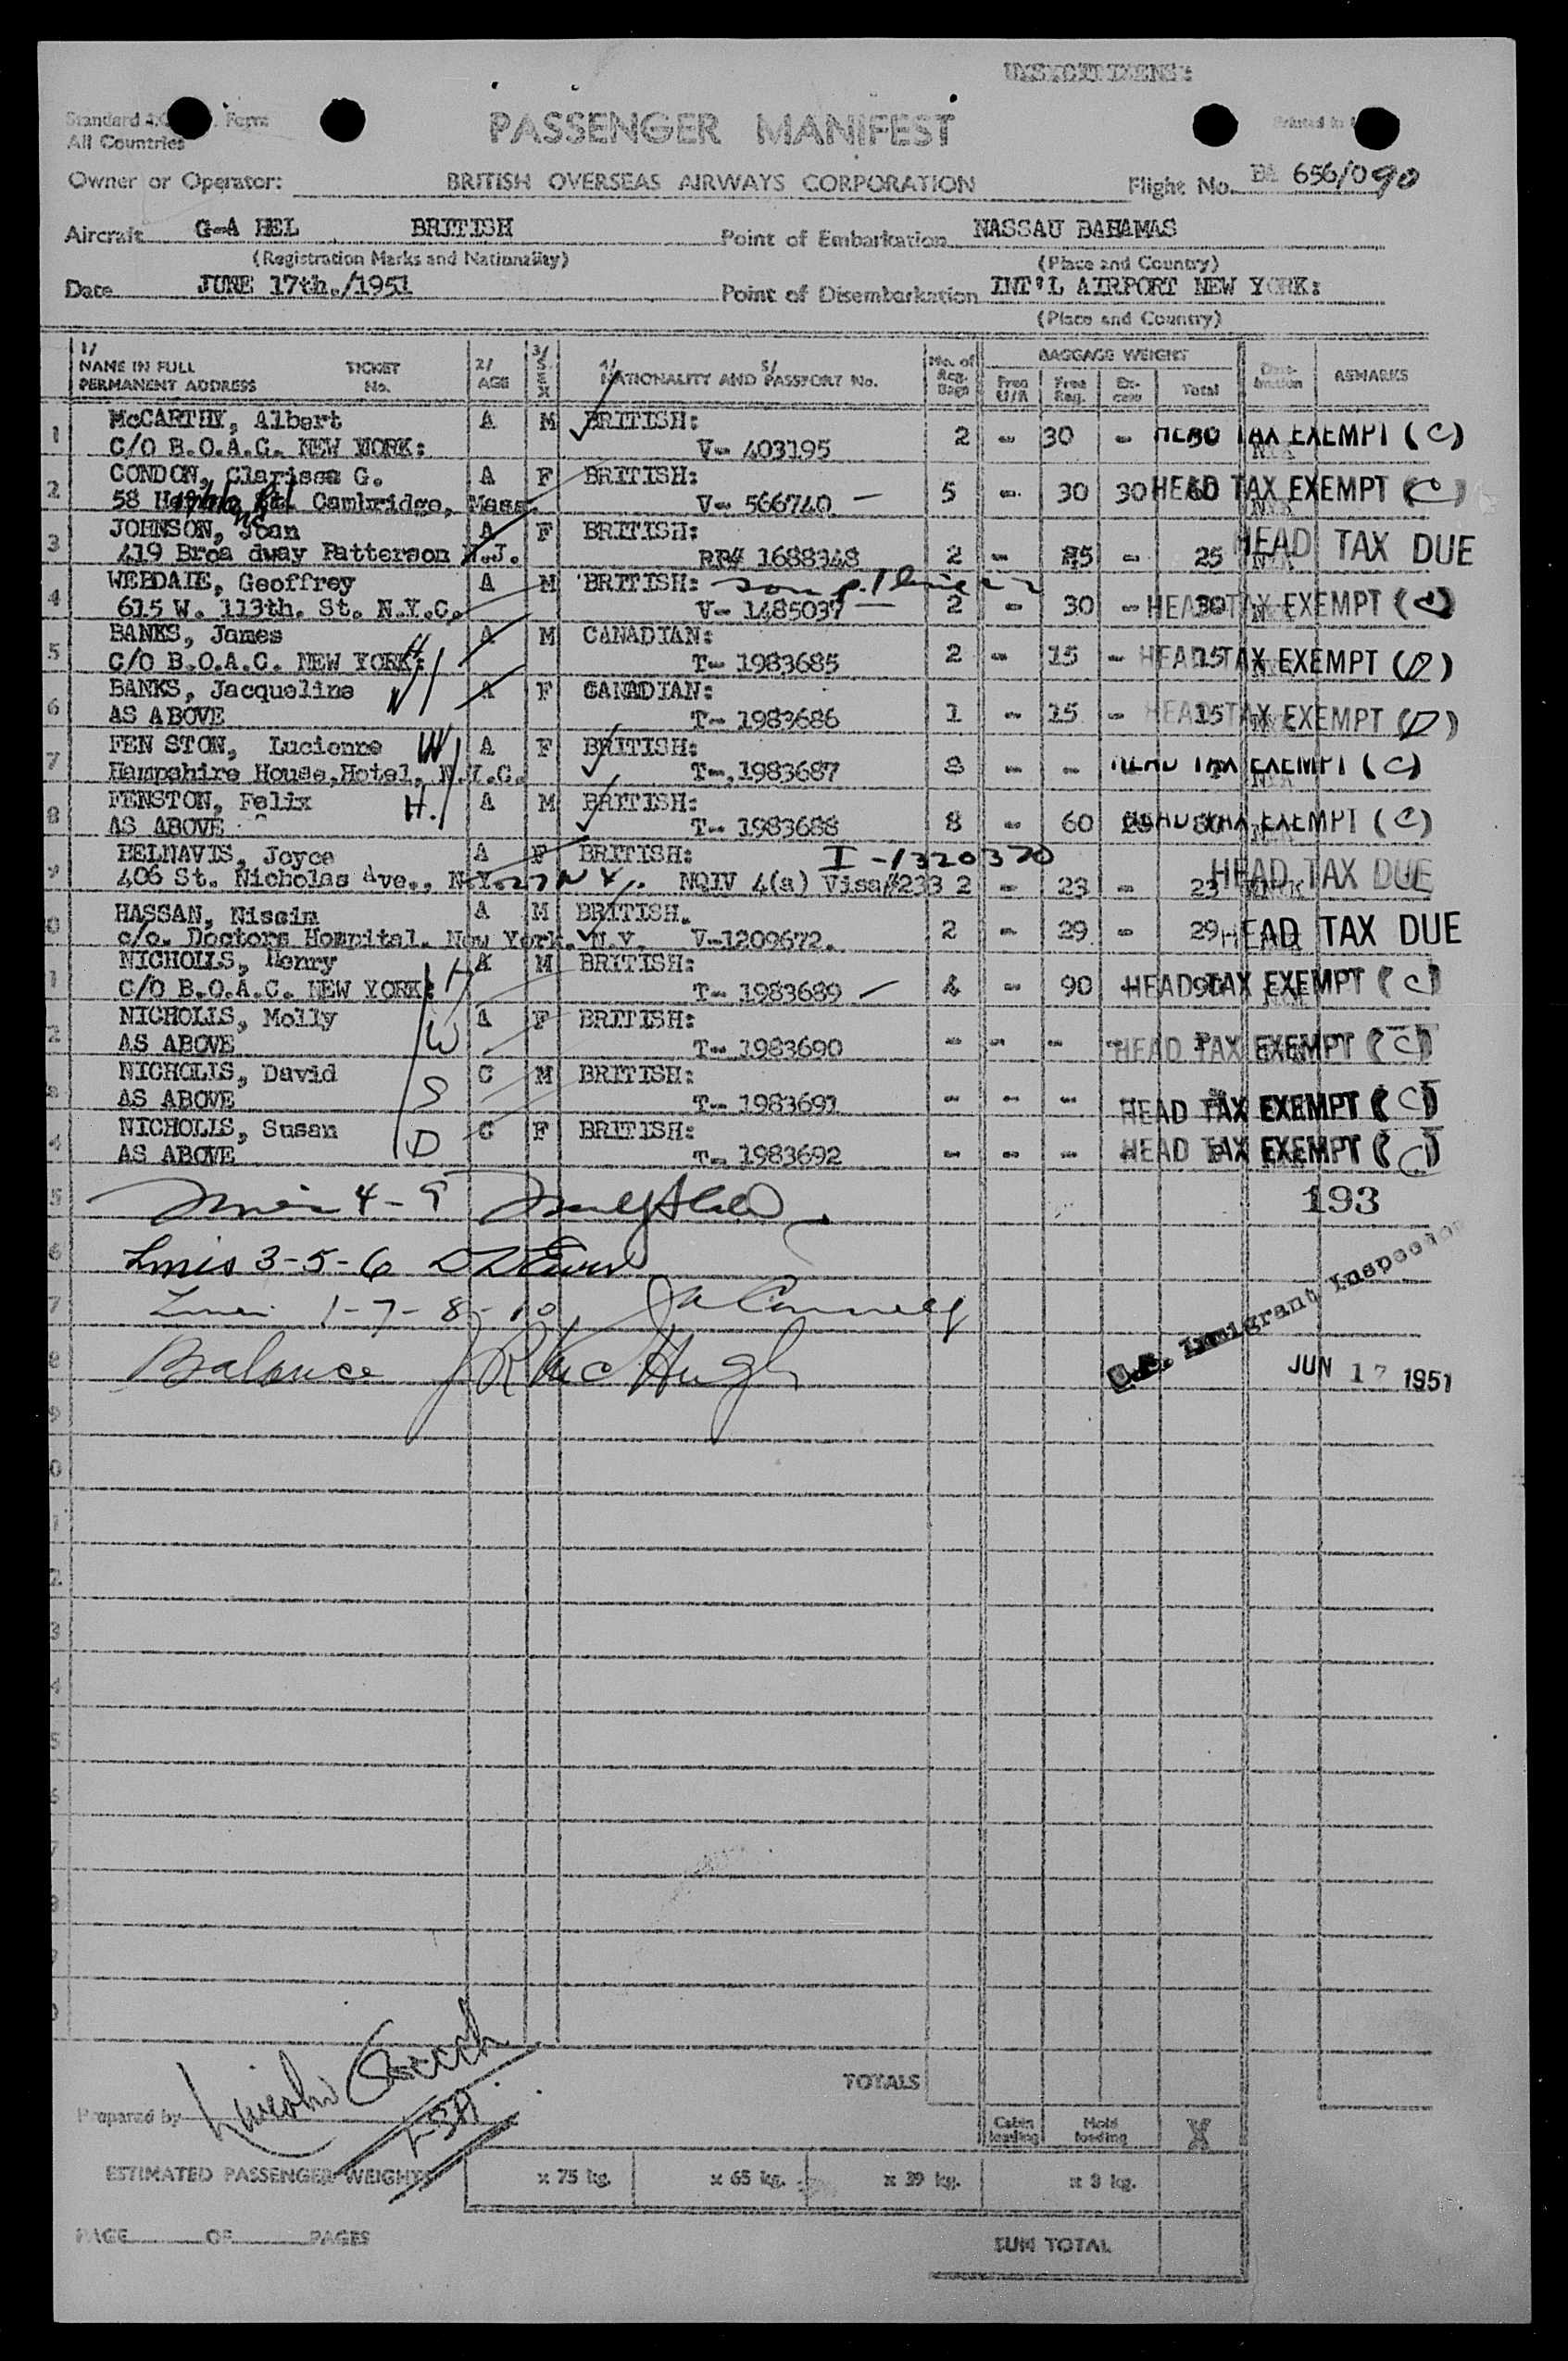 Standard Form
All Countries
PASSENGER MANIFEST
Printed in
Owner or Operator: BRITISH OVERSEAS AIRWAYS CORPORATION Flight No. BA 656/090
Aircraft G-A HEL BRITISH Point of Embarkation NASSAU BAHAMAS
(Registration Marks and Nationality) (Place and Country)
Date JUNE 17th./1951 Point of Disembarkation INT'L AIRPORT NEW YORK:
(Place and Country)
1/ NAME IN FULL PERMANENT ADDRESS TICKET No. 2/ AGE 3/ SEX 4/ 5/ NATIONALITY AND PASSPORT No. No. of Reg. Bags BAGGAGE WEIGHT Free U/A Free Reg. Ex- cess Total Dest- ination REMARKS
1 McCARTHY, Albert A M BRITISH:
C/O B.O.A.C. NEW YORK: V- 403195 2 - 30 - 30 HEAD TAX EXEMPT (C)
2 CONDON, Clarissa G. A F BRITISH:
58 Cambridge, Mass. V- 566740 - 5 - 30 30 60 HEAD TAX EXEMPT (C)
3 JOHNSON, Joan A F BRITISH:
419 Broa dway Patterson N.J. RP# 1688348 2 - 25 - 25 HEAD TAX DUE
4 WEBDALE, Geoffrey A M BRITISH:
615 W. 113th. St. N.Y.C. V- 1485037 - 2 - 30 - 30 HEAD TAX EXEMPT (C)
5 BANKS, James A M CANADIAN:
C/O B.O.A.C. NEW YORK: H T- 1983685 2 - 15 - 15 HEAD TAX EXEMPT (D)
6 BANKS, Jacqueline W A F CANADIAN:
AS ABOVE T- 1983686 1 - 15 - 15 HEAD TAX EXEMPT (D)
7 FEN STON, Lucienne W A F BRITISH:
Hampshire House,Hotel, N.Y.C. T-,1983687 - - HEAD TAX EXEMPT (C)
8 FENSTON, Felix H. A M BRITISH:
AS ABOVE T- 1983688 8 - 60 HEAD TAX EXEMPT (C)
9 BELNAVIS, Joyce A F BRITISH: I-1320370
406 St. Nicholas Ave., N.Y. 27 N.Y. NQIV 4(a) Visa#233 2 - 23 - 23 HEAD TAX DUE
0 HASSAN, Nissim A M BRITISH.
c/o. Doctors Hospital. New York. N.Y. V-1209672. 2 - 29 - 29 HEAD TAX DUE
1 NICHOLLS, Henry H A M BRITISH:
C/O B.O.A.C. NEW YORK: T- 1983689 - 4 - 90 - 90 HEAD TAX EXEMPT (C)
2 NICHOLLS, Molly W A F BRITISH:
AS ABOVE T- 1983690 - - - - HEAD TAX EXEMPT (C)
3 NICHOLLS, David S C M BRITISH:
AS ABOVE T- 1983691 - - - HEAD TAX EXEMPT (C)
4 NICHOLLS, Susan D C F BRITISH:
AS ABOVE T- 1983692 - - - - HEAD TAX EXEMPT (C)
5 4-9 193
6 Lines 3-5-6
7 1-7-8-10
U.S. Immigrant Inspector
8 Balance J R McHugh JUN 17 1951
9
0
1
2
3
4
5
6
7
8
9
0
TOTALS
Prepared by
Cabin loading Hold loading X
ESTIMATED PASSENGER WEIGHTS x 75 kg. x 65 kg. x 39 kg. x 8 kg.
PAGE OF PAGES SUM TOTAL